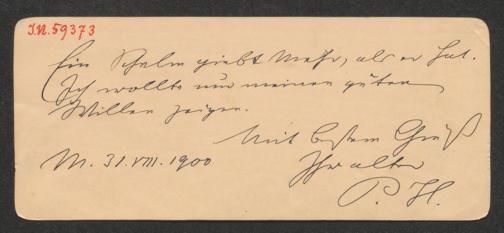 I.N. 59373
Ein Schelm giebt mehr, als er hat.
Ich wollte nur meinen guten
Willen zeigen.
Mit bestem Gruß
Ihr alter
M. 31. VIII. 1900
P. H.